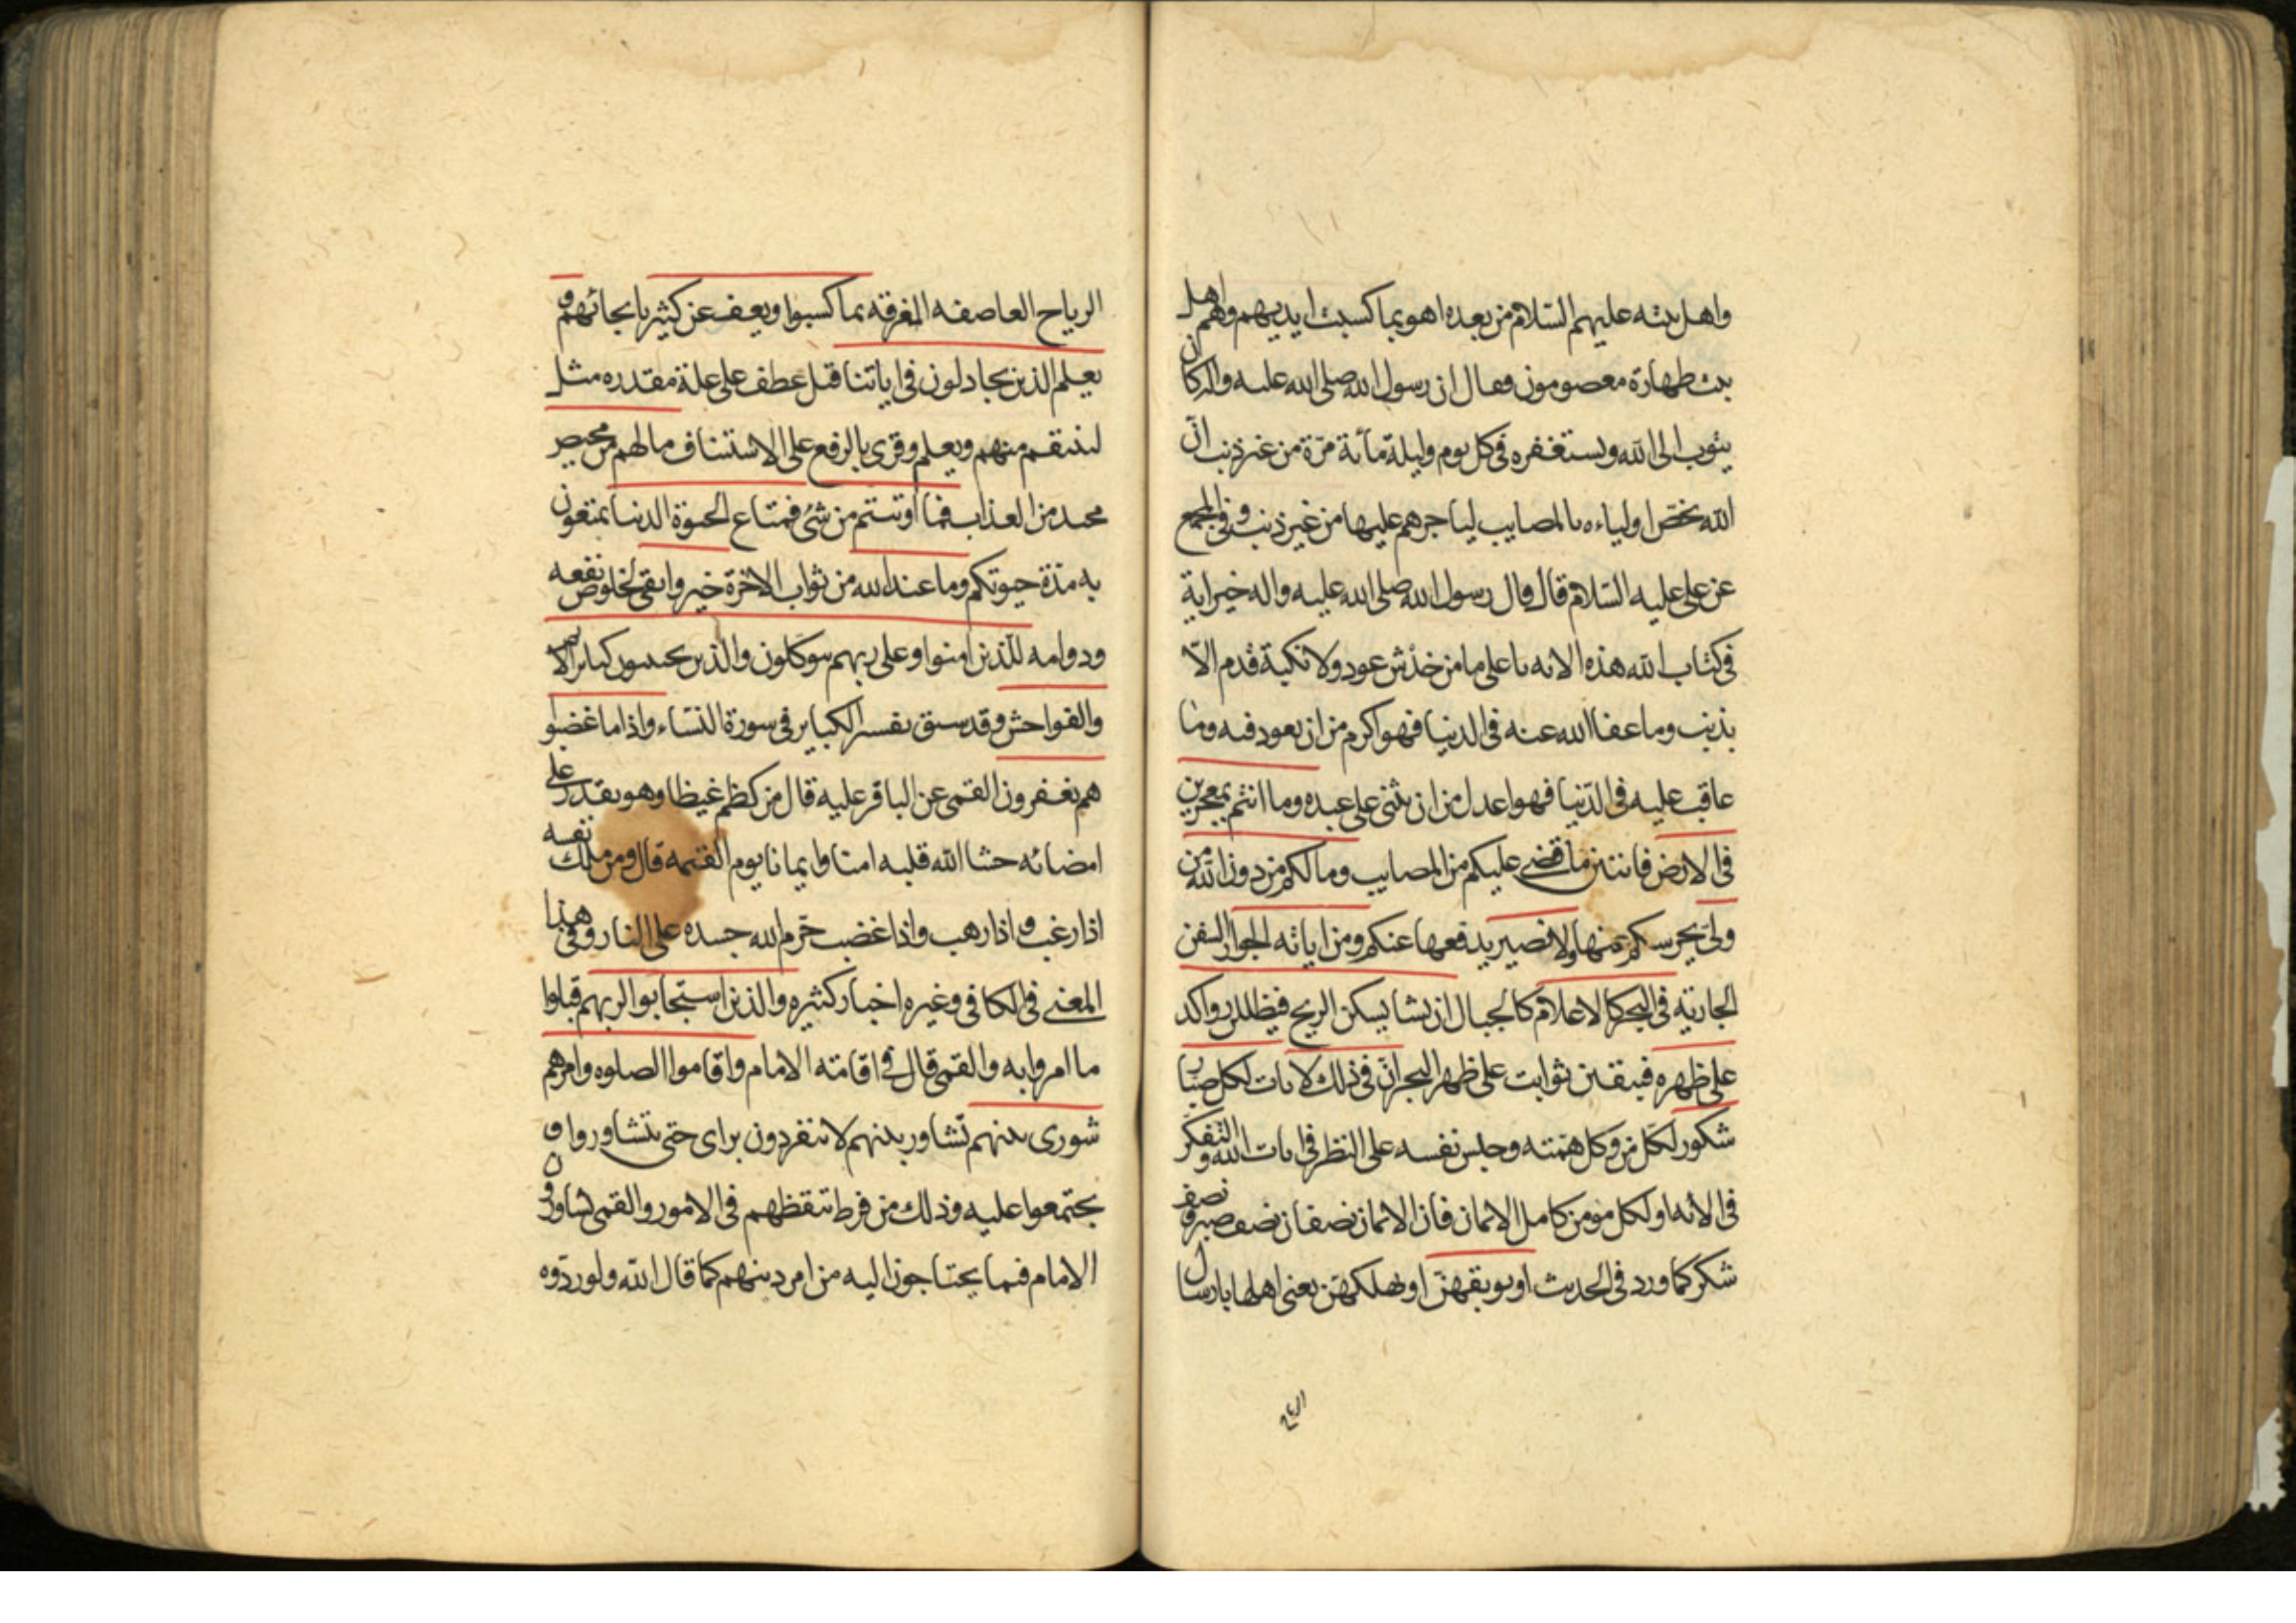 واهل بيته عليهم السلام من بعده اهو بما كسبت ايديهم وهم اهل
بيت طهارة معصومون فقال ان رسول الله صلى الله عليه واله كان
يتوب الى الله ويستغفره في كل يوم وليلة مأئة مرّة من غير ذنب انّ
الله يخصّ اولياءه بالمصايب لياجرهم عليها من غير ذنب وفي المجمع
عن علي عليه السلام قال قال رسول الله صلى الله عليه واله خير اية
في كتاب الله هذه الاية يا علي ما من خدش عود ولا نكبة قدم الّا
بذنب وما عفا الله عنه في الدنيا فهو اكرم من ان يعود فيه وما
عاقب عليه في الدّنيا فهو اعدل من ان يثنى على عبده وما انتم بمعجزين
في الارض فائتين ما قضى عليكم من المصايب وما لكم من دون الله من
وليّ يحرسكم عنها ولا نصير يدفعها عنكم ومن اياته الجوار السفن
الجارية في البحر كالاعلام كالجبال ان يشا يسكن الريح فيظللن رواكد
على ظهره فيبقين ثوابت على ظهر البحر انّ في ذلك لايات لكل صبّار
شكور لكل من وكل همّته وحبس نفسه على النظر في ايات الله والتفكر
في الائه او لكل مومن كامل الايمان فان الايمان نصفان نصف صبر ونصف
شكر كما ورد في الحديث او يوبقهنّ او يهلكهنّ يعني اهلها بارسال
الرياح
الرياح العاصفه المغرقه بما كسبوا ويعف عن كثير بانجائهم و
يعلم الذين يجادلون في اياتنا قيل عطف على علة مقدره مثل
لينتقم منهم ويعلم وقرى بالرفع على الاستيناف ما لهم من محيص
محيد من العذاب فما اوتيتم من شئ فمتاع الحيوة الدنيا تمتعون
به مدة حيوتكم وما عند الله من ثواب الاخرة خير وابقى لخلوص نفعه
ودوامه للّذين امنوا وعلى ربهم يتوكلون والذين يجتنبون كباير الاثم
والفواحش وقد سبق تفسير الكباير في سورة النساء واذا ما غضبوا
هم يغفرون القمي عن الباقر عليه قال من كظم غيظا وهو يقدر على
امضائه حشا الله قلبه امنا وايمانا يوم القيمه قال ومن ملك نفسه
اذا رغب واذا رهب واذا غضب حرّم الله جسده على النار وفي هذا
المعنى في الكافي وغيره اخبار كثيره والذين استجابوا لربهم قبلوا
ما امروا به والقمي قال في اقامة الامام واقاموا الصلوه وامرهم
شورى بينهم تشاور بينهم لا ينفردون براى حتى يتشاوروا و
يجتمعوا عليه وذلك من فرط تيقظهم في الامور والقمي يشاورون
الامام فيما يحتاجون اليه من امر دينهم كما قال الله ولو ردّوه